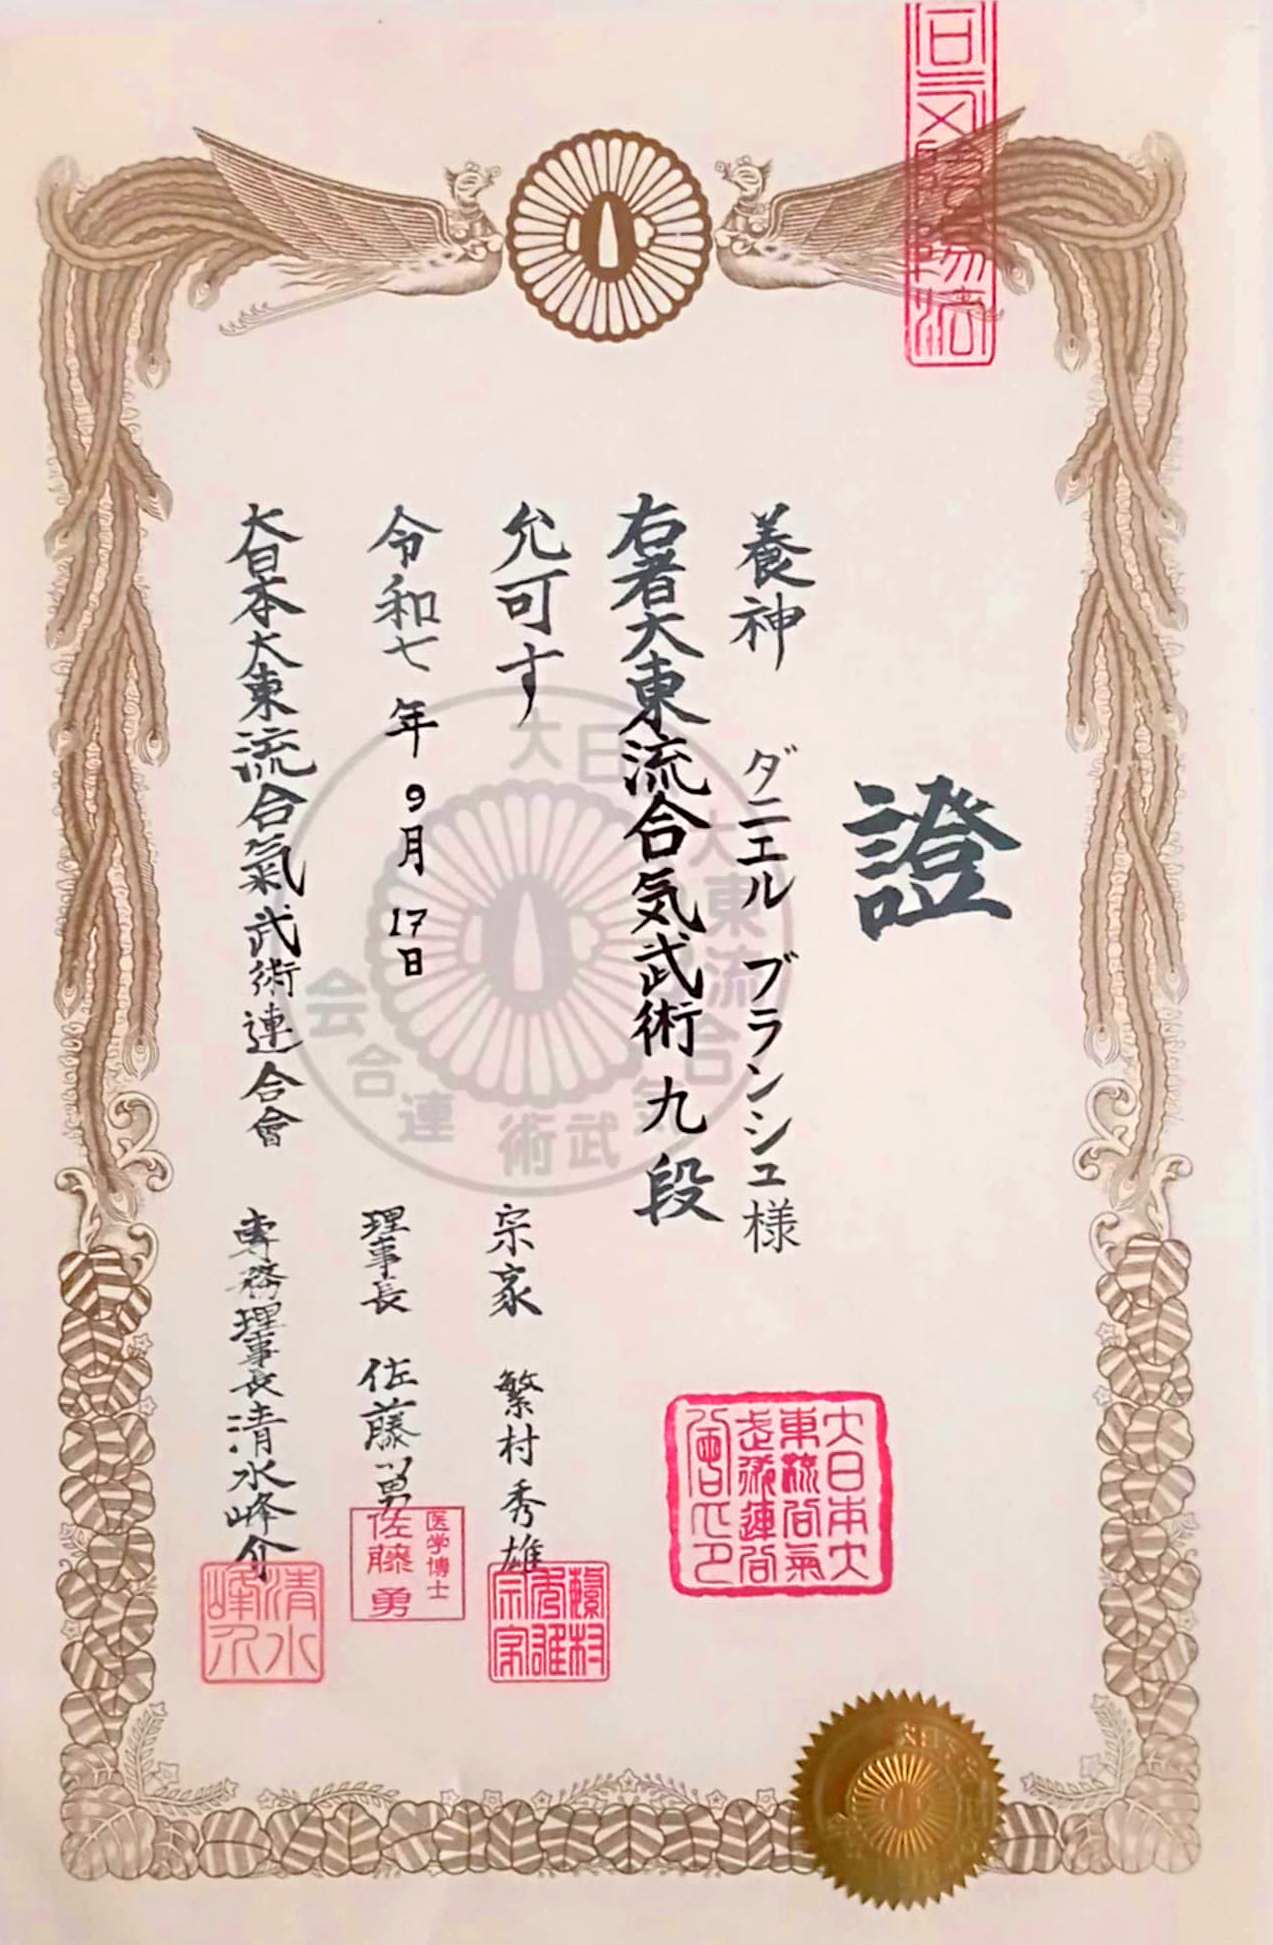 證
養神 ダニエル ブランシュ様
右者大東流合気武術九段
允可す
令和七年9月17日
大日本大東流合氣武術連合會
宗家 繁村秀雄
理事長 佐藤勇
専務理事長清水峰介
合気陰陽法
大日本大
東流合気
武術連合
会之印
繁村
秀雄
宗家
医学博士
佐藤勇
清水
峰介
大日本大東流合気武術連合会